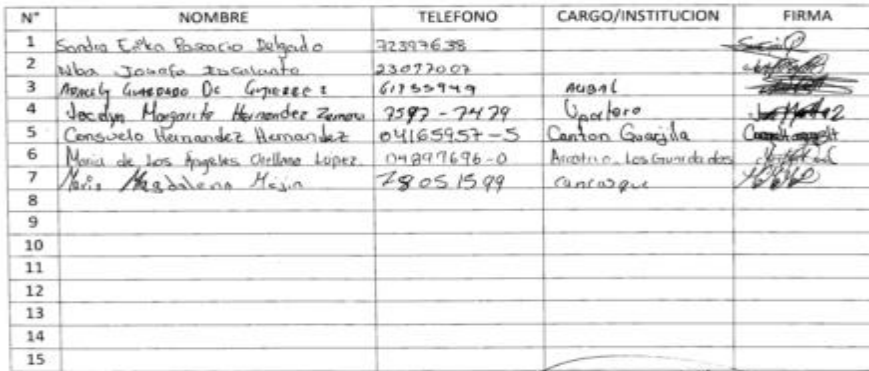 N° NOMBRE TELEFONO CARGO/INSTITUCION FIRMA
1 Sandra Erika Delgado 72397638
2 Alba Josefa Escalante 23077007
3 Aracely Guardado De Gutierrez 61755949
4 Jocelyn Margarita Hernandez Zamora 7597-7479
5 Consuelo Hernandez Hernandez 04165957-5 Canton Guarjila
6 Maria de Los Angeles Orellana López 04897696-0 Los Guardados
7 Maria Magdalena Mejia 78051599 Cancasque
8
9
10
11
12
13
14
15